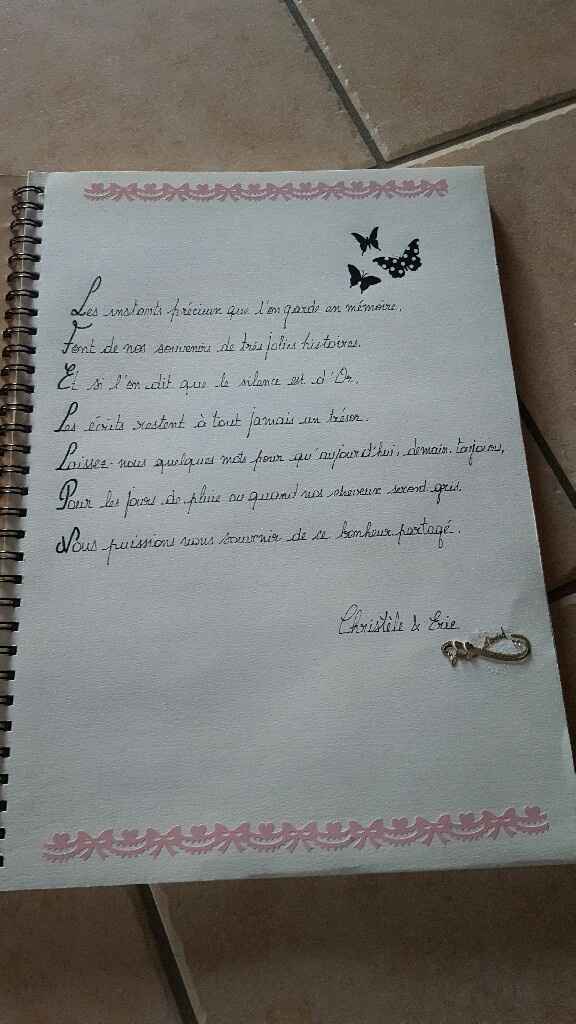 Les instants précieux que l'on garde en mémoire,
Font de nos souvenirs de très jolies histoires.
Et si l'on dit que le silence est d'Or,
Les écrits restent à tout jamais un trésor.
Laissez-nous quelques mots pour qu'aujourd'hui, demain, toujours,
Pour les jours de pluie ou quand nos cheveux seront gris,
Nous puissions nous souvenir de ce bonheur partagé.
Christèle & Eric